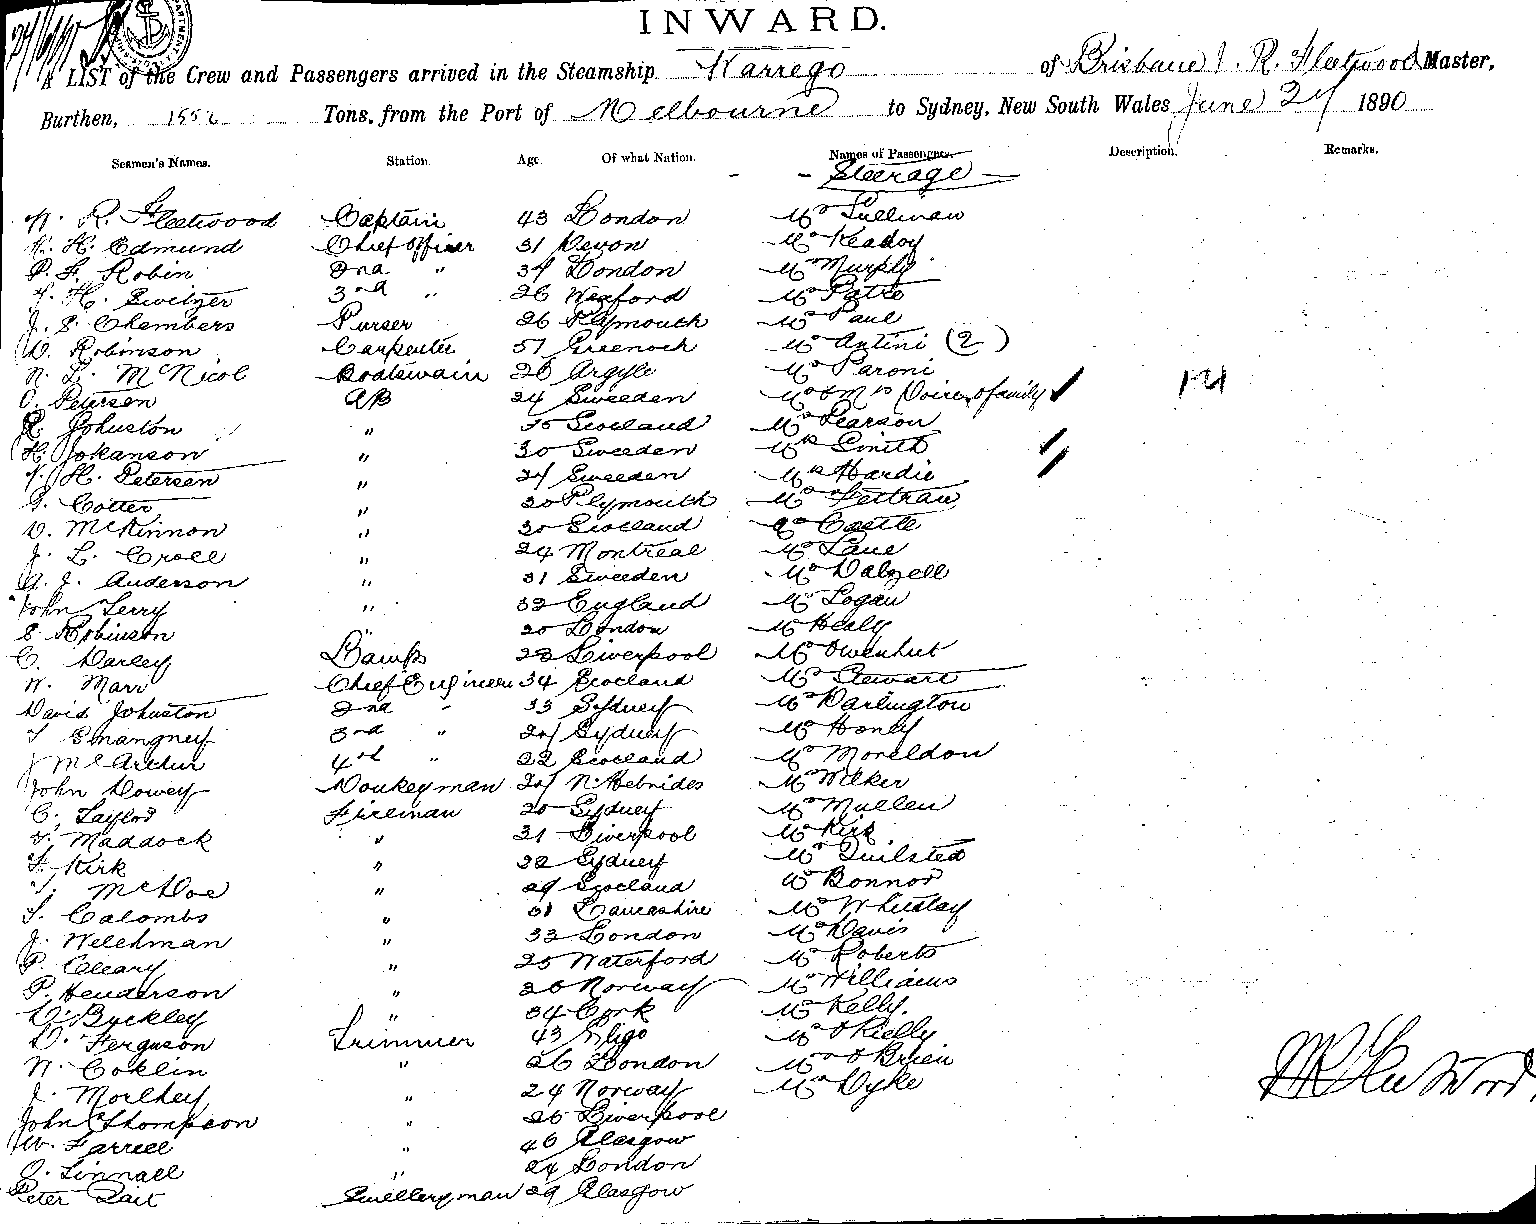 INWARD.
A LIST of the Crew and Passengers arrived in the Steamship Warrego of Brisbane R. Fleetwood Master,
Burthen, 1552 Tons, from the Port of Melbourne to Sydney, New South Wales June 24 1890
Seamen's Names. Station. Age. Of what Nation. Names of Passengers. Description. Remarks.
Steerage
W. R. Fleetwood Captain 43 London Mr Sullivan
W. H. Edmund Chief Officer 31 Devon Mr Keadoy
P. F. Robin 2nd " 34 London Mr Murphy
H. Switzer 3rd " 26 Wexford Mr
J. S. Chambers Purser 26 Plymouth Mr Paul
W. Robinson Carpenter 57 Greenock Mr Antini (2)
N. L. McNicol Boatswain 26 Argyle Mr Paroni
O. Petersen AB 24 Sweeden Mr & Mrs family
R. Johnston " 35 Scotland Mr Pearson
H. Johanson " 30 Sweeden Mrs Smith
H. Petersen " 24 Sweeden Mrs Hardie
G. Cotter " 30 Plymouth Mr
D. McKinnon " 30 Scotland Mr Castle
J. L. Croll " 24 Montreal Mr Lane
A. J. Anderson " 31 Sweeden Mr Dalzell
John Terry " 32 England Mr Logan
E. Robinson " 20 London Mr Healy
C. Darley Lamps 23 Liverpool Mr
W. Marr Chief Engineer 34 Scotland Mr Stewart
David Johnston 2nd " 33 Sydney Mr Darlington
T 3rd " 24 Sydney Mr Honey
J McArthur 4th " 22 Scotland Mr Moreldon
John Dowey Donkeyman 24 N. Hebrides Mr Wilker
C. Taylor Fireman 20 Sydney Mr Mullen
Maddock " 31 Liverpool Mr Kirk
F. Kirk " 22 Sydney Mr Quilsted
T. McDoe " 29 Scotland Mr Bonnor
S. Calombs " 31 Lancashire Mr
J. Welchman " 33 London Mr Davis
P. Cleary " 25 Waterford Mr Roberts
P. Henderson " 26 Norway Mr Williams
D. Buckley " 34 Cork Mr Kelly.
D. Ferguson Trimmer 43 Sligo Mr O'Rielly
W. Coklin " 26 London Mr O'Brien
J. Morlhey " 24 Norway Mr Dyke
John Thompson " 26 Liverpool
W. Farrell " 46 Glasgow
O. Linnall " 24 London
Peter Tait 29 Glasgow